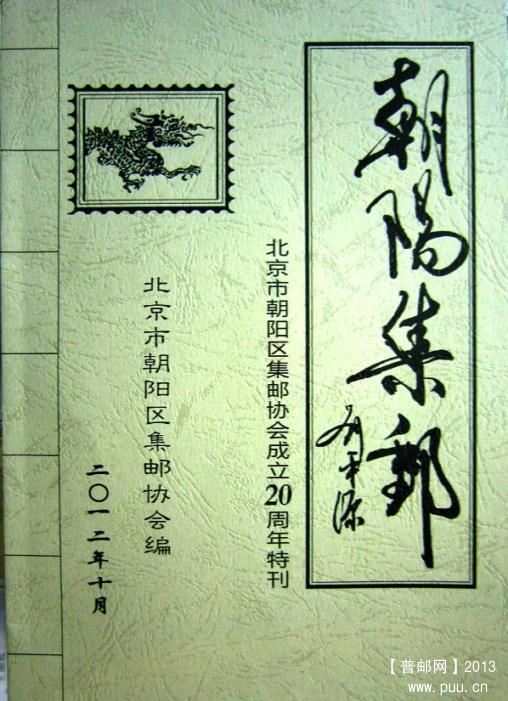 朝陽集郵
北京市朝阳区集邮协会成立20周年特刊
北京市朝阳区集邮协会编
二〇一二年十月
【普邮网】2013
www.puu.cn